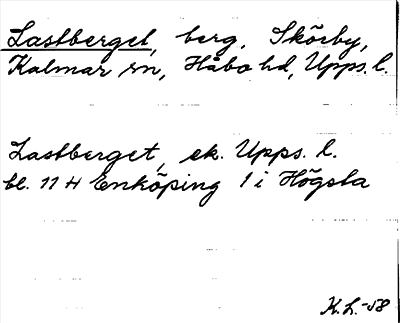 Lastberget, berg, Skörby,
Kalmar sn, Håbo hd, Upps. l.
Lastberget, ek. Upps. l.
bl. 11 H Enköping 1 i Högsta
K.L.-58